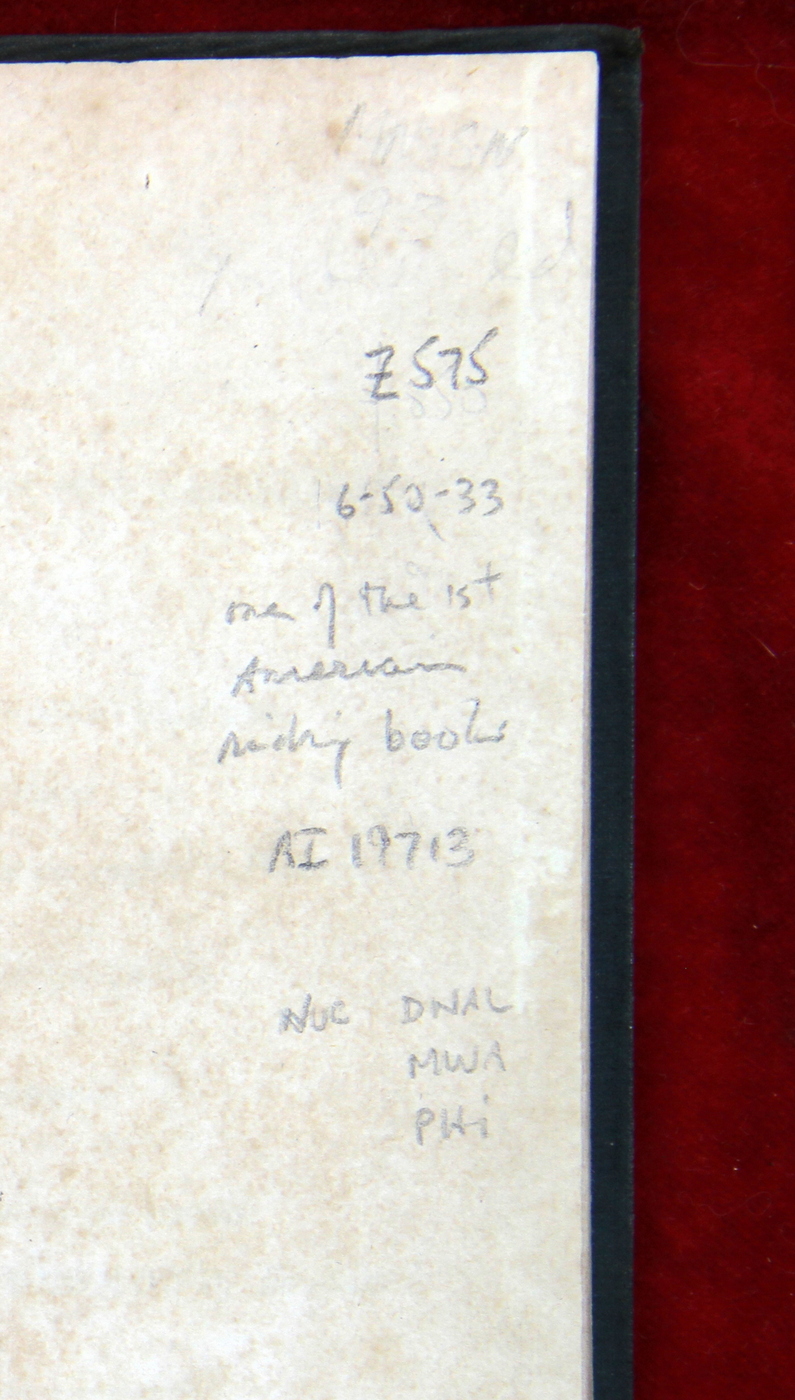 Z575
6-50-33
one of the 1st
American
riding books
AI 19713
NUC DNAL
MWA
PHi